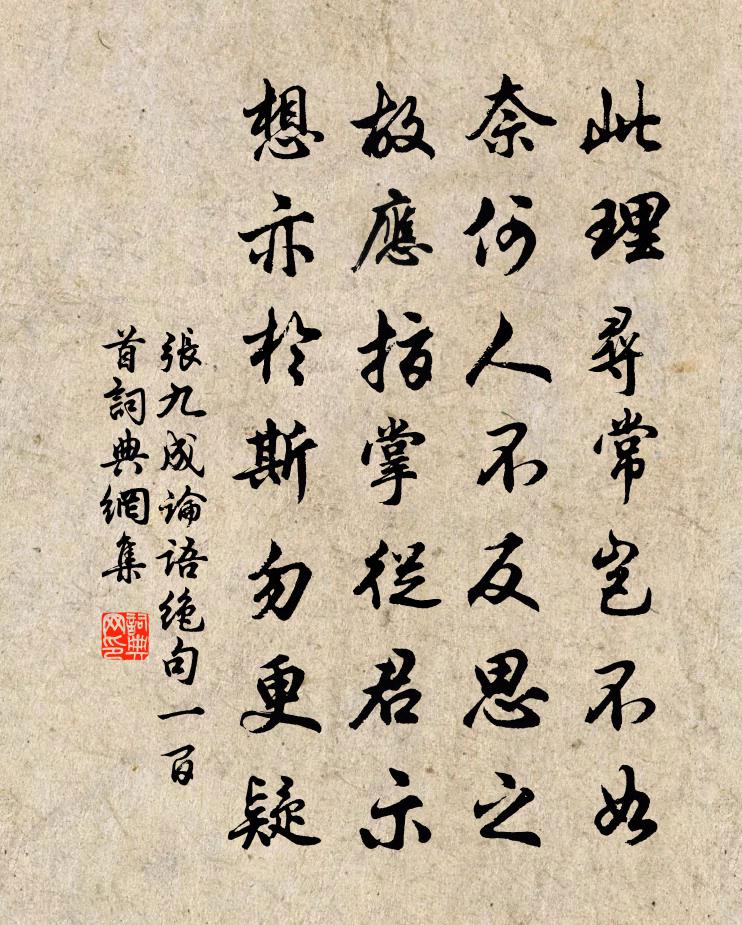 此理尋常豈不知
奈何人不反思之
故應指掌從君示
想亦於斯勿更疑
張九成論語絶句一百
首詞典網集
詞典
网印